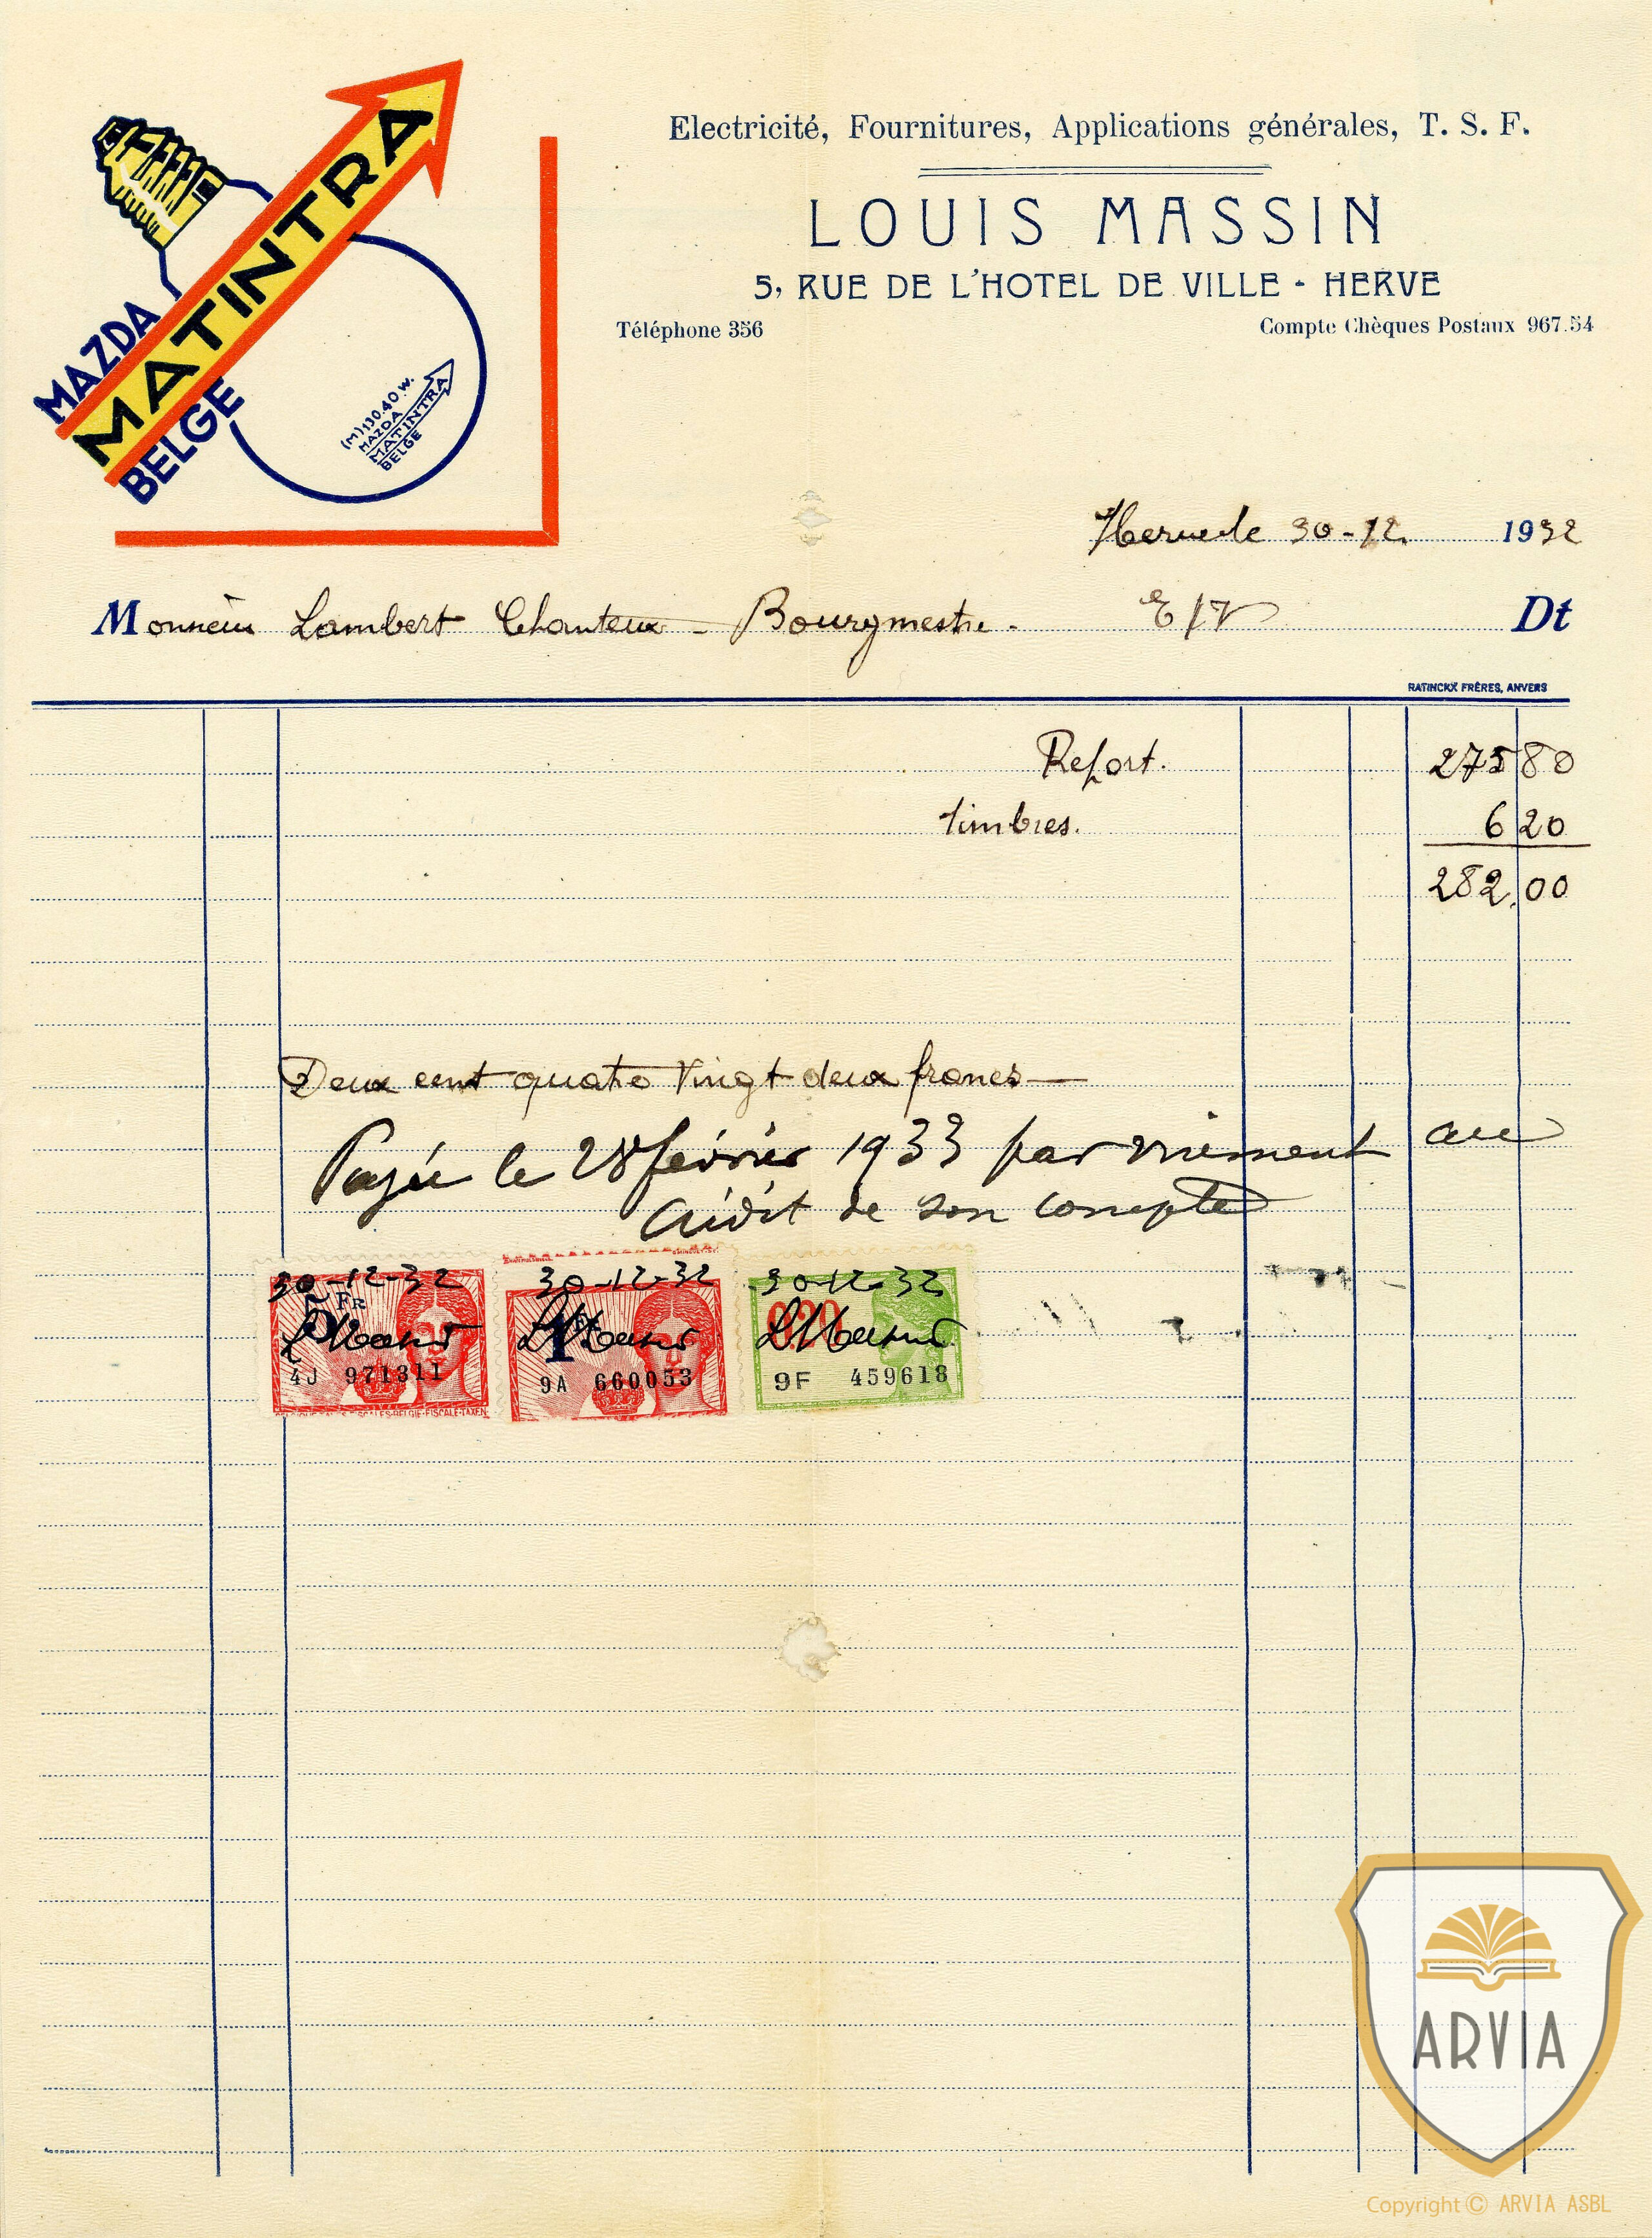 Electricité, Fournitures, Applications générales, T. S. F.
LOUIS MASSIN
5, RUE DE L'HOTEL DE VILLE - HERVE
Téléphone 356
Compte Chèques Postaux 967.54
MAZDA
MATINTRA
BELGE
(M) 130.40 w.
MAZDA
MATINTRA
BELGE
Herve le 30-12. 1932
Monsieur Lambert Chanteux - Bourgmestre. E/V Dt
RATINCKX FRÈRES, ANVERS
Report. 275 80
timbres. 6 20
282,00
Deux cent quatre vingt deux francs
Payée le 28 février 1933 par virement au
crédit de son compte
30-12-32 30-12-32 30-12-32
5 FR 1 0.20
L Massin L Massin L Massin
4J 971311 9A 660053 9F 459618
FISCALES-BELGIE-FISCALE-TAXEN
ARVIA
Copyright © ARVIA ASBL